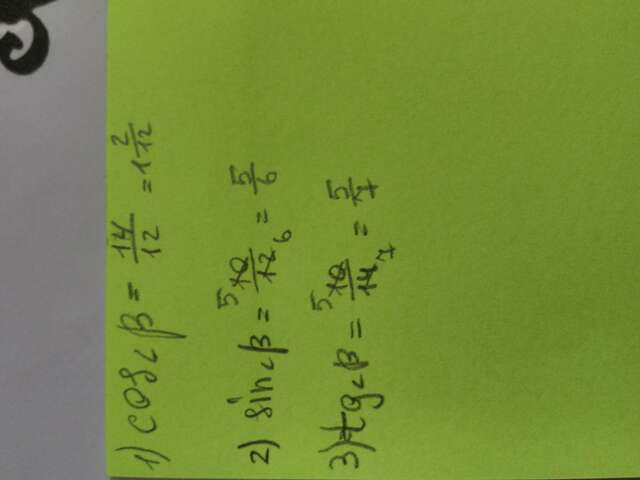 1) cos∠β = 14/12 = 1 2/12
2) sin∠β = 5 10/12 6 = 5/6
3) tg∠β = 5 10/14 7 = 5/7